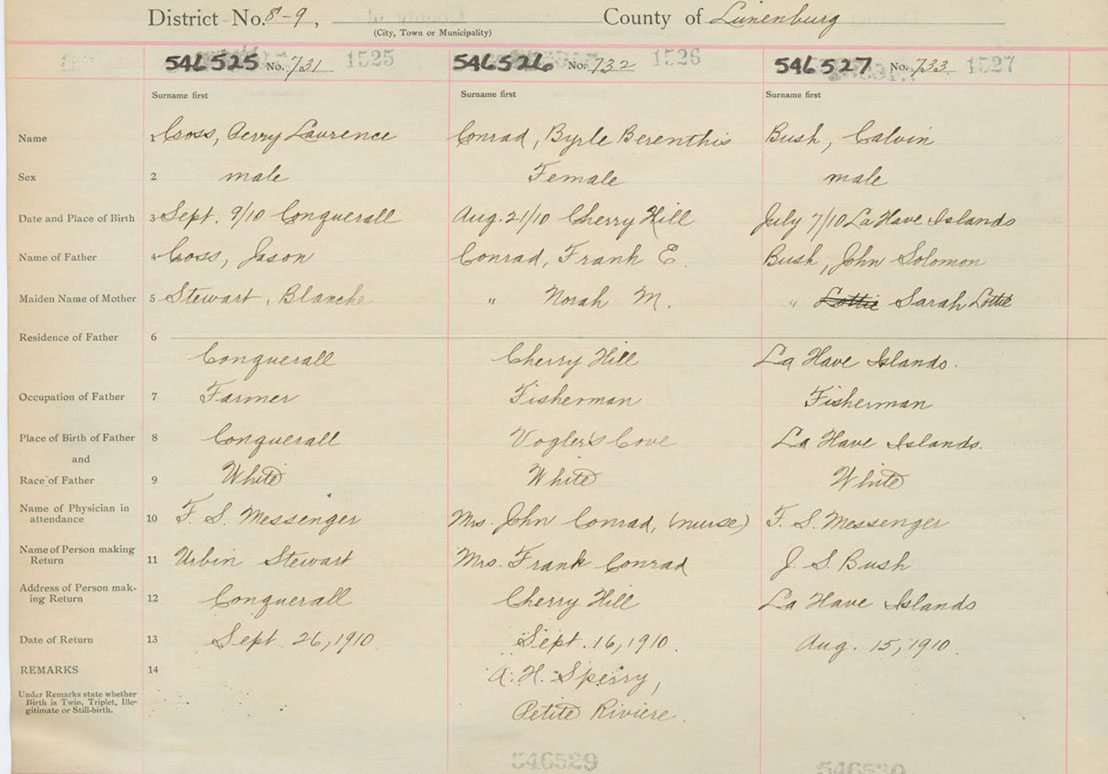 District No. 8-9, County of Lunenburg
(City, Town or Municipality)
546525 No. 731 1525 546526 No. 732 1526 546527 No. 733 1527
Surname first Surname first Surname first
Name 1 Coss, Aerry Laurence Conrad, Byrle Berenthis Bush, Calvin
Sex 2 male Female male
Date and Place of Birth 3 Sept. 9/10 Conquerall Aug. 21/10 Cherry Hill July 7/10 La Have Islands
Name of Father 4 Coss, Jason Conrad, Frank E. Bush, John Solomon
Maiden Name of Mother 5 Stewart, Blanche " Norah M. " Lottie Sarah Lottie
Residence of Father 6
Conquerall Cherry Hill La Have Islands.
Occupation of Father 7 Farmer Fisherman Fisherman
Place of Birth of Father 8 Conquerall Vogler's Cove La Have Islands.
and
Race of Father 9 White White White
Name of Physician in
attendance 10 F. S. Messenger Mrs. John Conrad, (nurse) F. S. Messenger
Name of Person making
Return 11 Urbin Stewart Mrs. Frank Conrad J. S. Bush
Address of Person mak-
ing Return 12 Conquerall Cherry Hill La Have Islands
Date of Return 13 Sept. 26, 1910 Sept. 16, 1910. Aug. 15, 1910.
REMARKS 14 A. H. Sperry,
Under Remarks state whether
Birth is Twin, Triplet, Ille-
gitimate or Still-birth.
Petite Riviere.
546529